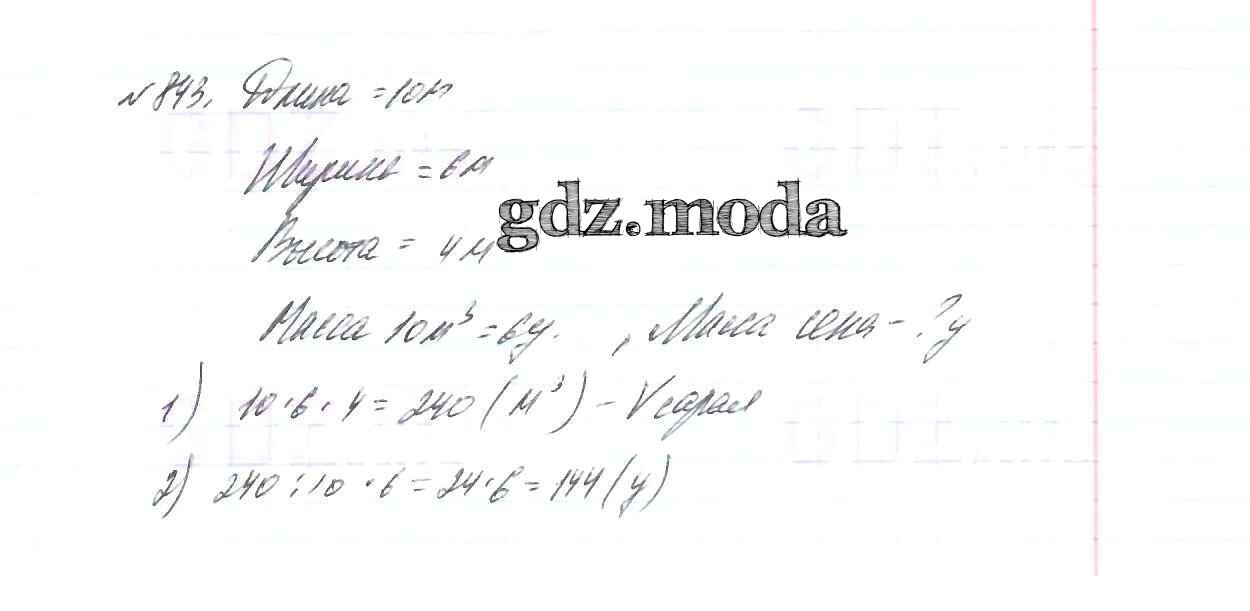 № 843. Длина = 10 м
Ширина = 6 м
gdz.moda
Высота = 4 м
Масса 10 м³ = 6 ц. , Масса сена - ? ц
1) 10 · 6 · 4 = 240 (м³) – V сарая
2) 240 : 10 · 6 = 24 · 6 = 144 (ц)